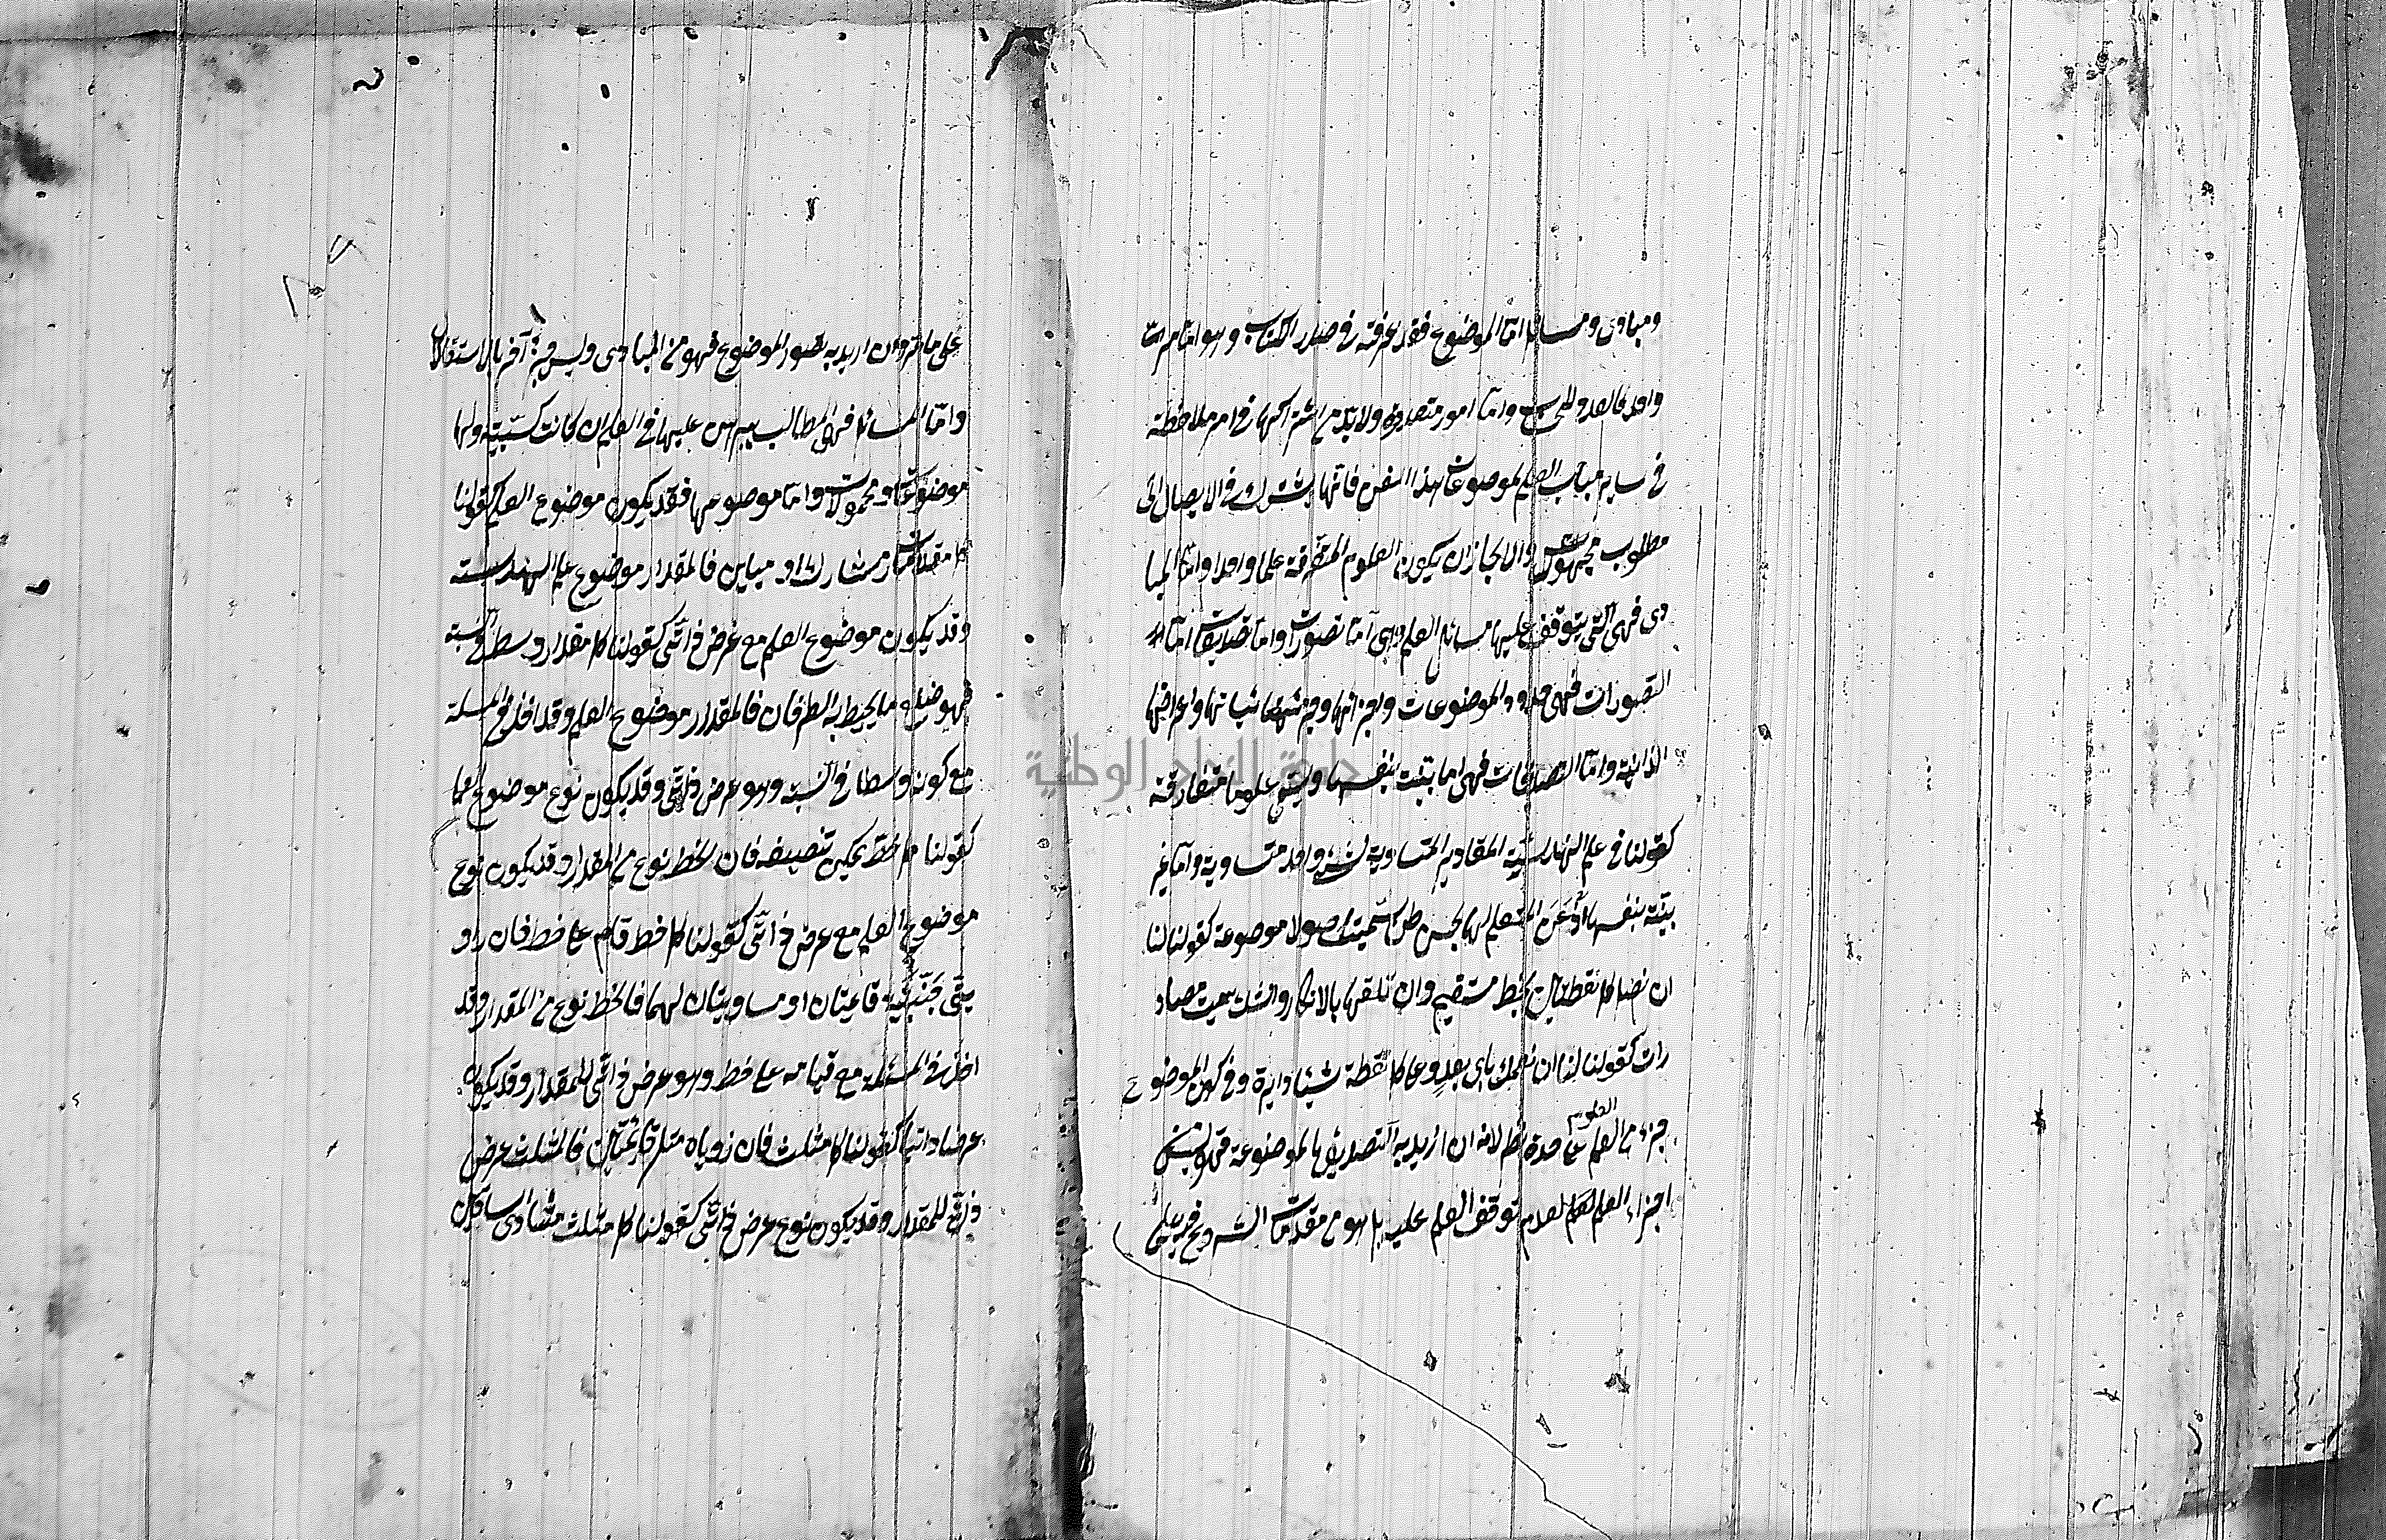 ومبادى ومسائل امّا الموضوع فقد عرفته فى صدر الكتاب وهو امّا امر
واحد كالعدد للحساب وامّا امور متعددة ولا بدّ من اشتراكها فى امر ملاحظة
فى ساير مباحث العلم كموضوعات هذا الفن فانّها تشترك فى الايصال الى
مطلوب مجهول والا لجاز ان يكون العلوم المتفرقة علما واحدا وامّا المبا
دى فهى التى يتوقف عليها مسائل العلم وهى امّا تصورات وامّا تصديقات امّا
التصورات فهى حدود الموضوعات واجزائها وجزئياتها واعراضها
الذاتية وامّا التصديقات فهى اما بيّنة بنفسها وتسمى علوما متعارفة
كقولنا فى علم الهندسة المقادير المتساوية لشئ واحد متساوية وامّا غير
بيّنة بنفسها اذعن المتعلم لها بحسن ظن سمّيت اصولا موضوعة كقولنا لنا
ان نصل كل نقطتين بخط مستقيم وان تلقها بالانكار والشك سميت مصاد
رات كقولنا لنا ان نعمل باى بعد وعلى كل نقطة شيئا دايرة وفى كون الموضوع
جزء من العلوم على حدة نظر لانه ان اريد به التصديق بالموضوعة فهو ليس من
اجزاء العلم لعدم توقف العلم عليه بل هو من مقدمات الشروع فيه على
على ما مر وان اريد به تصور الموضوع فهو من المبادى وليس جزء آخر بالاستقلال
وامّا المسائل فهى المطالب يبرهن عليها فى العلم ان كانت كسبية ولها
موضوعات ومحمولات وامّا موضوعها فقد يكون موضوع العلم كقولنا
كل مقدار مشارك او مباين فالمقدار موضوع علم الهندسة
وقد يكون موضوع العلم مع عرض ذاتى كقولنا كل مقدار وسط فى النسبة
فهو ضلع ما يحيط به الطرفان فالمقدار موضوع العلم وقد اخذ فى المسئلة
مع كونه وسطا فى النسبة وهو عرض ذاتى وقد يكون نوع موضوع العلم
كقولنا كل خط يمكن تنصيفه فان الخط نوع من المقدار وقد يكون نوع
موضوع العلم مع عرض ذاتى كقولنا كل خط قام على خط فان زاو
يتى جنبتيه قائمتان او مساويتان لهما فالخط نوع من المقدار وقد
اخذ فى المسئلة مع قيامه على خط وهو عرض ذاتى للمقدار وقد يكون
عرضا ذاتيا كقولنا كل مثلث فان زواياه مثل قائمتين فالمثلث عرض
ذاتى للمقدار وقد يكون نوع عرض ذاتى كقولنا كل مثلث متساوى الساقين